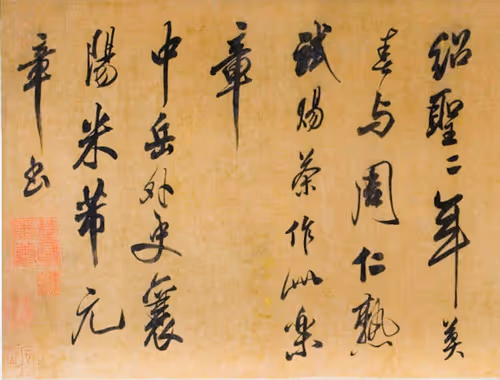 紹聖二年莫
春与周仁熟
試賜茶作此樂
章
中岳外史襄
陽米芾元
章书